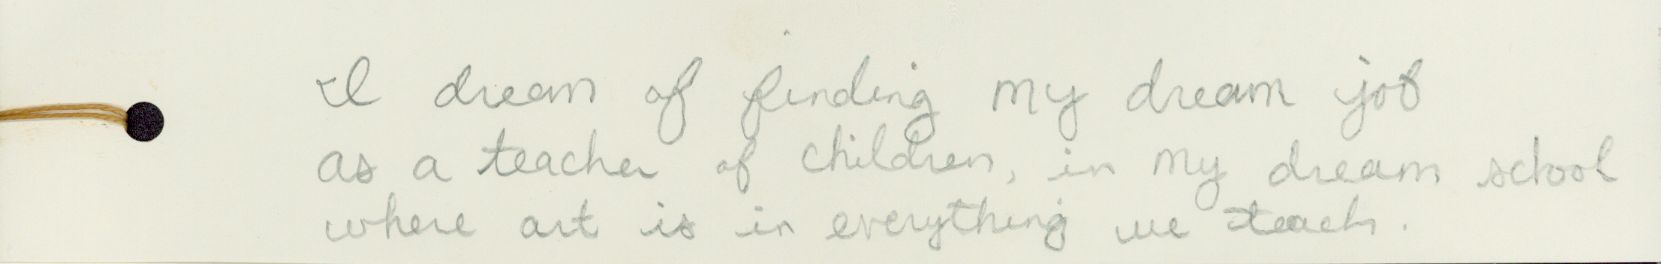 I dream of finding my dream job
as a teacher of children, in my dream school
where art is in everything we teach.